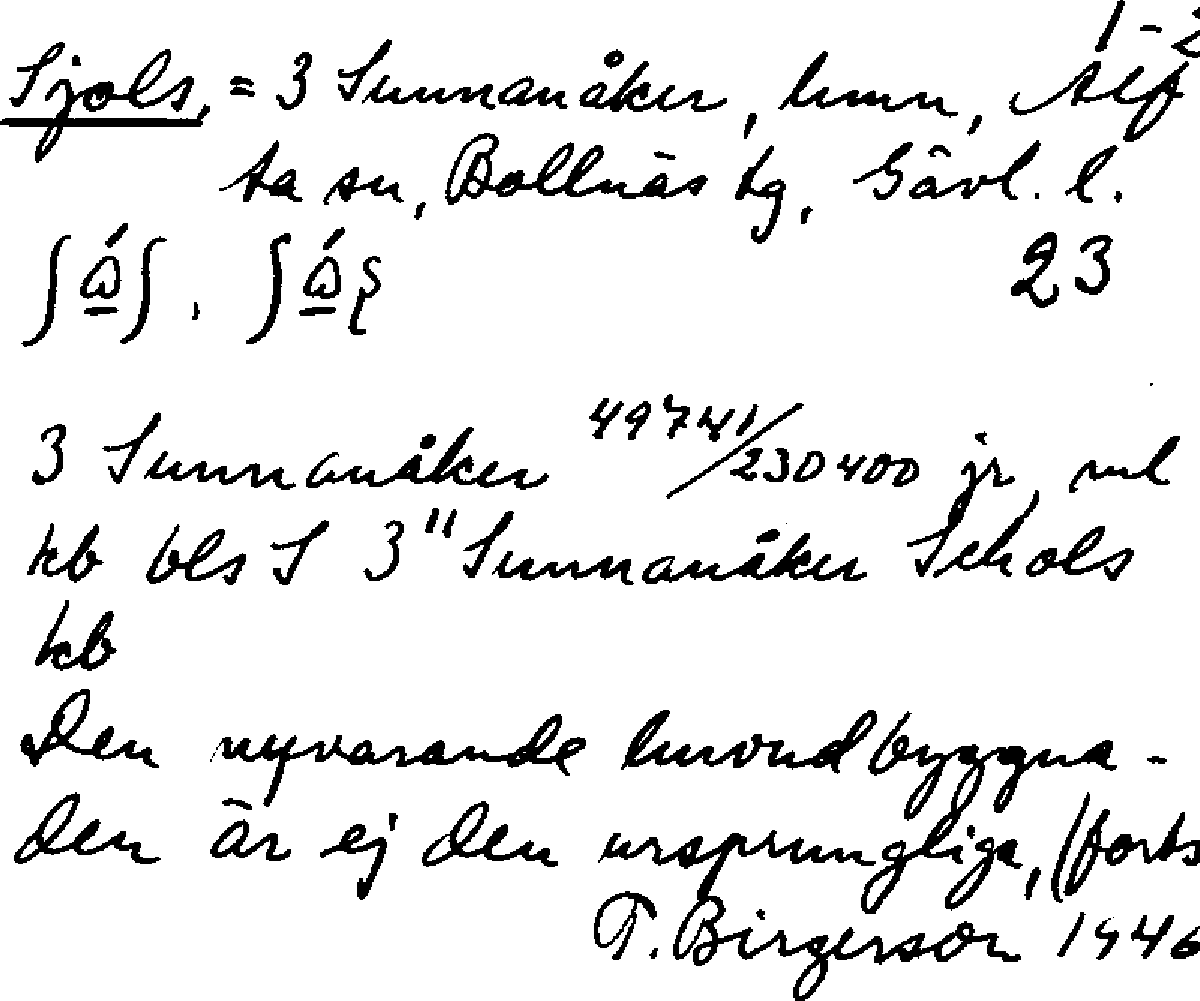 1-2
Sjols, = 3 Sunnanåker, hmn, Alf
ta sn, Bollnäs tg, Gävl. l.
23
3 Sunnanåker 49741/230400 jr, ml
kb bls S 3" Sunnanåker Schols
kb
Den nyvarande huvudbyggna-
den är ej den ursprungliga, (forts
T. Birgerson 1946